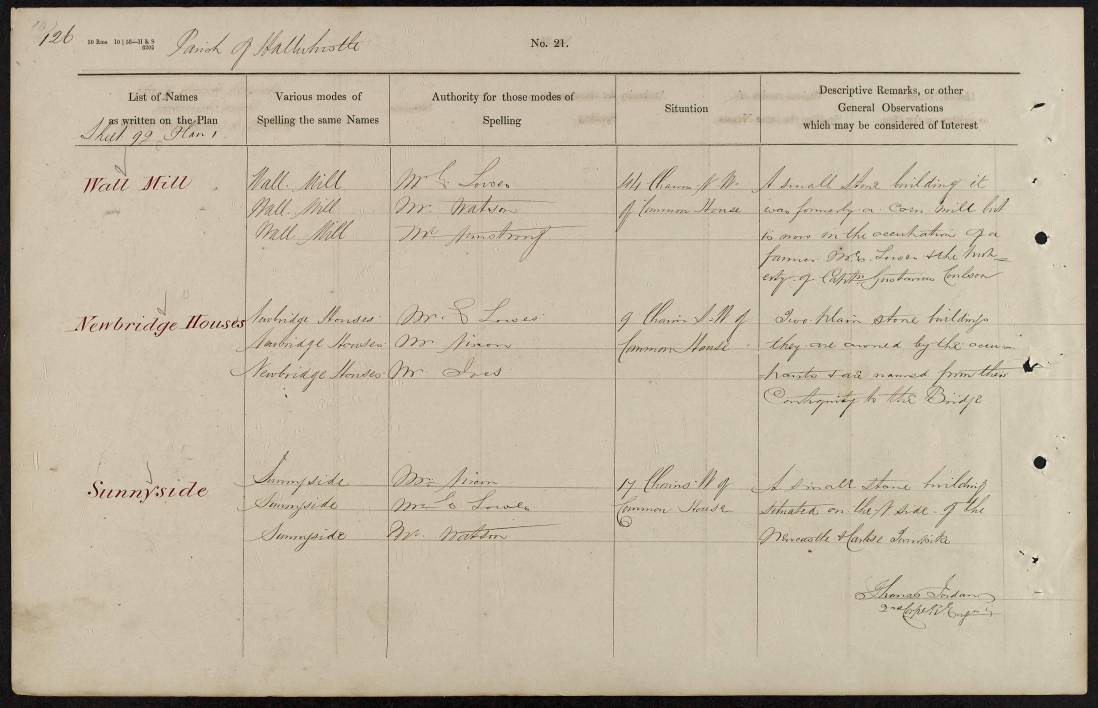 126
Parish of Haltwhistle
No. 21.
List of Names
as written on the Plan
Various modes of
Spelling the same Names
Authority for those modes of
Spelling
Situation
Descriptive Remarks, or other
General Observations
which may be considered of Interest
Sheet 92 Plan 1.
Wall Mill
Wall Mill
Wall Mill
Wall Mill
Mr. Lowes
Mr. Watson
Mr. Armstrong
44 Chains N.W.
of Common House
A small stone building it
was formerly a Corn Mill but
is now in the occupation of a
farmer Mr. Lowes & the prop=
erty of Captn. Gustavus Coulson
Newbridge Houses
Newbridge Houses
Newbridge Houses
Newbridge Houses
Mr. E Lowes
Mr. Nixon
Mr. Ives
9 Chains S.W of
Common House
Two plain stone buildings
they are owned by the occu
pants & are named from their
Contiguity to the Bridge
Sunnyside
Sunnyside
Sunnyside
Sunnyside
Mr. Nixon
Mr. Lowes
Mr. Watson
17 Chains W of
Common House
A small stone building
situated on the N side of the
Newcastle & Carlisle Turnpike
Thomas Jordan
2nd Corpl R. Engrs